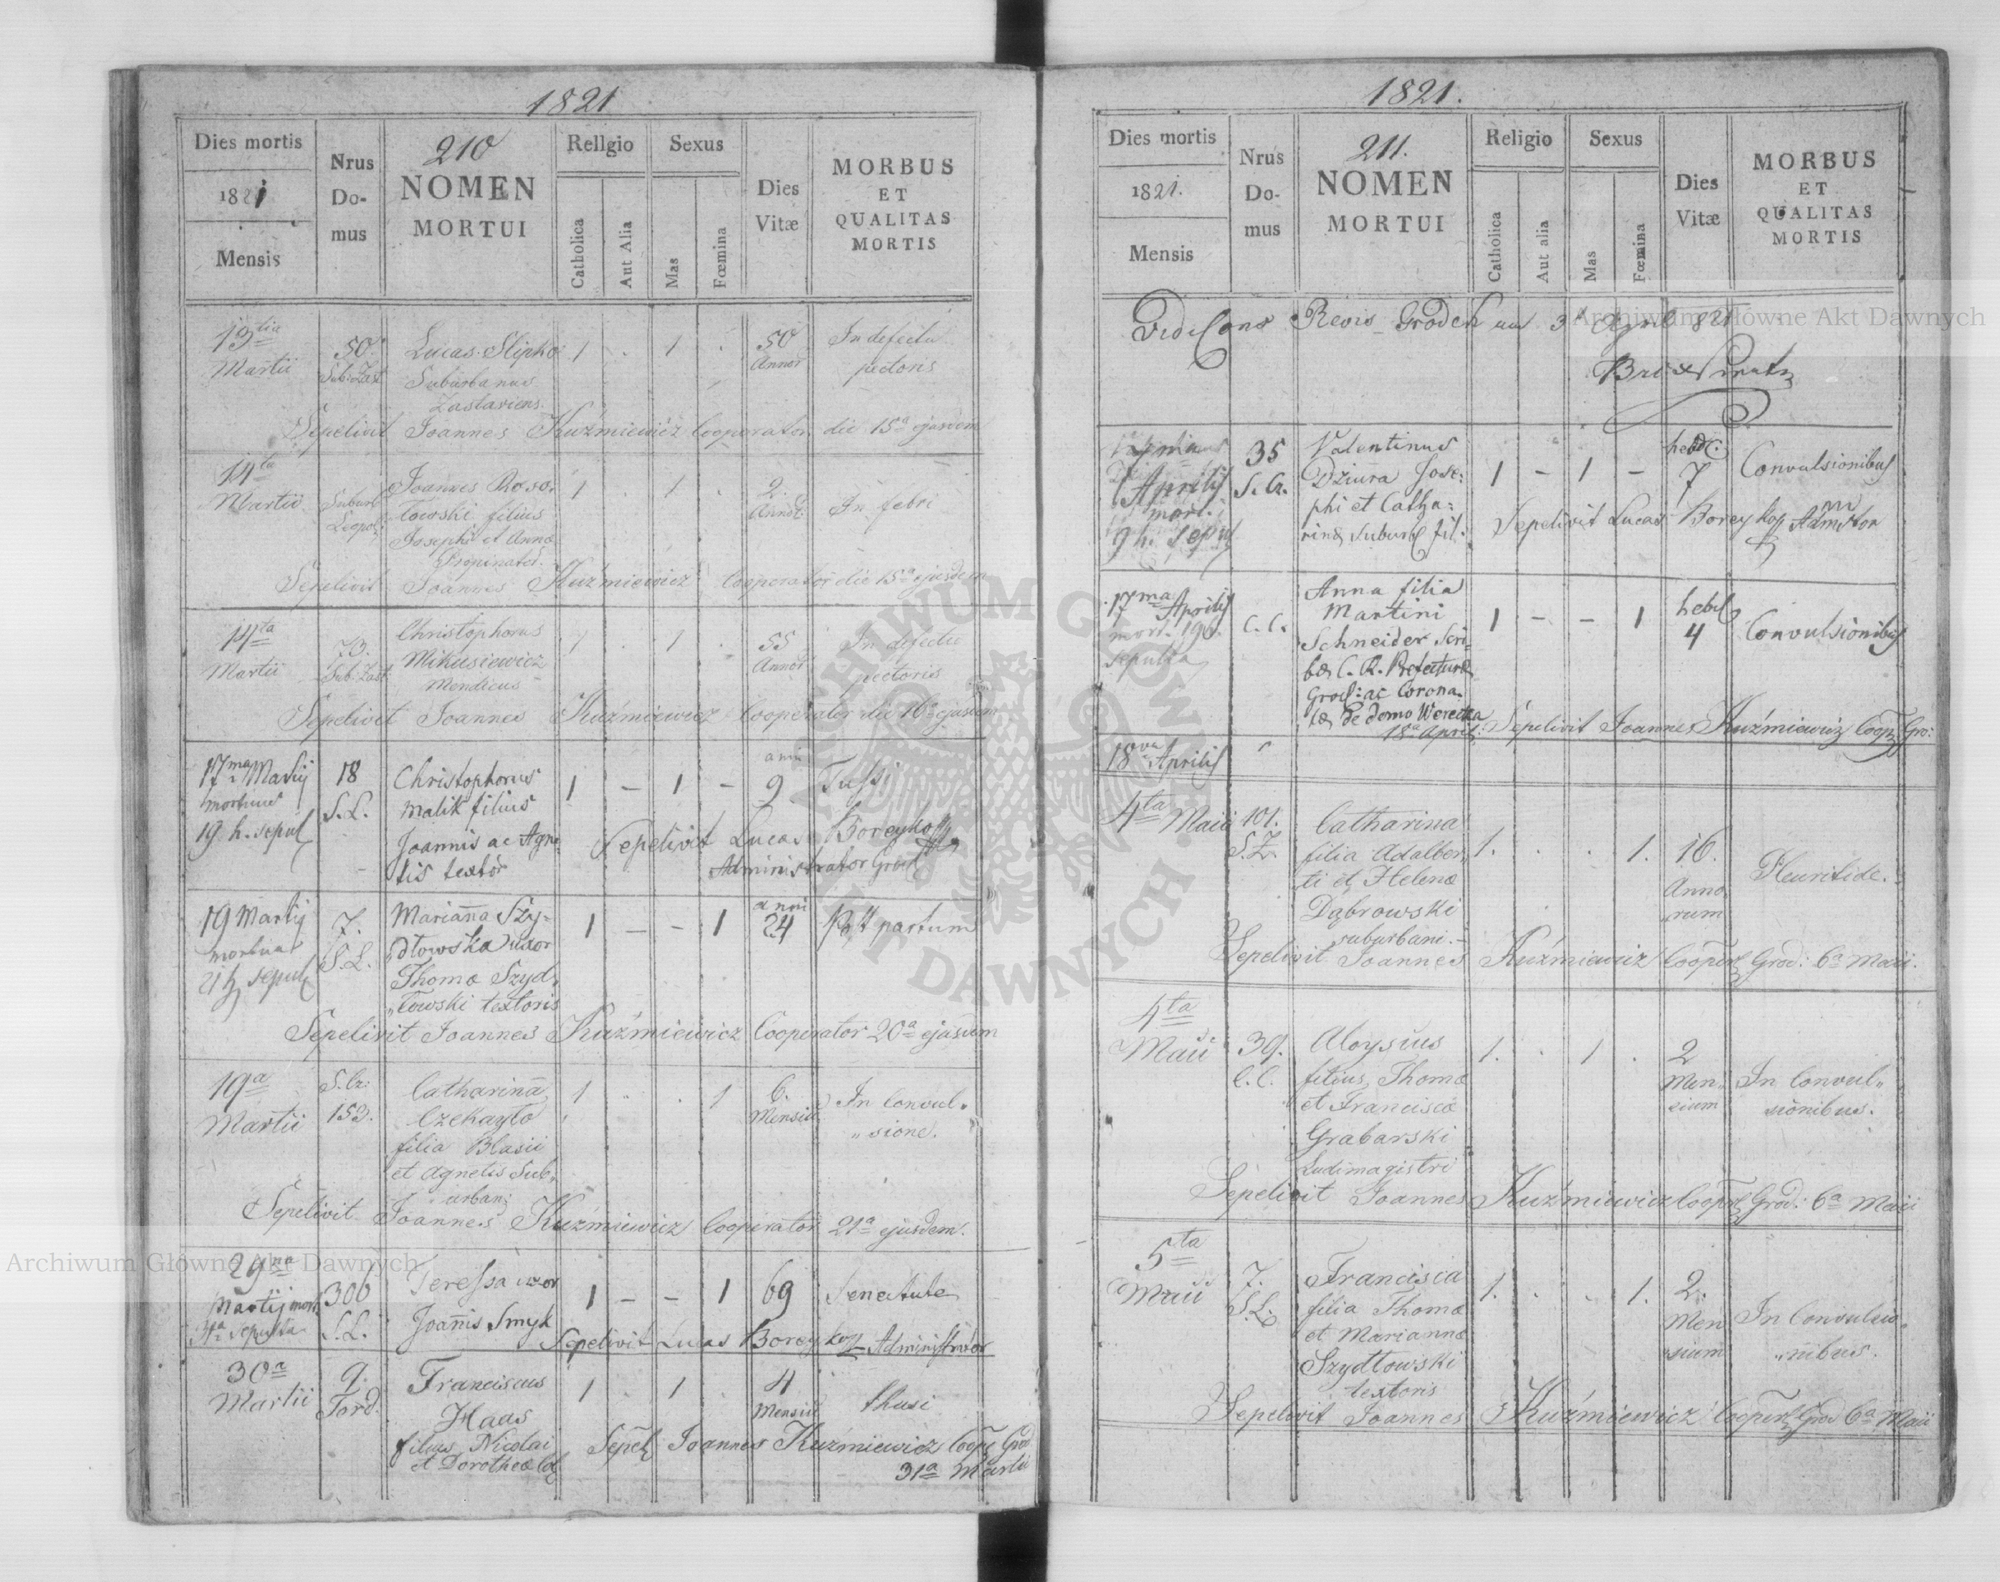 1821
Dies mortis
1821
Mensis
Nrus
Do-
mus
210
NOMEN
MORTUI
Rellgio
Catholica
Aut Alia
Sexus
Mas
Fœmina
Dies
Vitæ
MORBUS
ET
QUALITAS
MORTIS
13tia
Martii
50.
Sub: Zast
Lucas Slipko
Suburbanus
Zastaviens.
1 . 1 .
50
Annor
In defectu
pectoris
Sepelivit Joannes Kuźmiewicz Cooperator die 15a ejusdem
14ta
Martii
Suburb
Leopol:
Joannes Roso-
łowski filius
Josephi et Annæ
Propinator.
1 . 1 .
2.
Annor.
In febri
Sepelivit Joannes Kuźmiewicz Cooperator die 15a ejusdem
14ta
Martii
73.
Sub: Zast
Christophorus
Mikusiewicz
Mendicus
1 . 1 .
55
Annor
In defectu
pectoris
Sepelivit Joannes Kuźmiewicz Cooperator die 16a ejusdem
17ma Martij
mortuus
19. h. sepul
18
S.L.
Christophorus
Malik filius
Joannis ac Agne
tis textor
1 – 1 –
anni
9
Tussi
Sepelivit Lucas Boreyko
Administrator Grod
19 Martij
mortua
21 h. sepul
7.
S.L.
Marianna Szy-
dłowska uxor
Thomæ Szyd-
„łowski textoris
1 – – 1
anni
24
Post partum
Sepelivit Joannes Kuźmiewicz Cooperator 20a ejusdem
19a
Martii
S. Cr.
153.
Catharina
Czekayło
filia Blasii
et Agnetis Sub-
urban:
1 . . 1
6.
Mensiū
In Convul-
„sione.
Sepelivit Joannes Kuźmiewicz Cooperator 21a ejusdem.
29na
Martij mort.
31a sepulta
306
S.L.
Teressa uxor
Joannis Smyk
1 – – 1
69
Senectute
Sepelivit Lucas Boreyko Administrator
30a
Martii
9.
Ford.
Franciscus
Haas
filius Nicolai
et Dorotheæ Col
1 . 1 .
4
Mensiū
thusi
Sepel Joannes Kuźmiewicz Coop Grod
31a Martii
1821.
Dies mortis
1821.
Mensis
Nrus
Do-
mus
211.
NOMEN
MORTUI
Religio
Catholica
Aut alia
Sexus
Mas
Fœmina
Dies
Vitæ
MORBUS
ET
QUALITAS
MORTIS
Vidi Cano Revis Grodek am 3t April 821
Aprilis
mort.
9 h. sepul
35
S. Cr.
Valentinus
Dziura Jose-
phi et Catha-
rinæ suburb fil.
1 – 1 –
hebd:
7
Convulsionibus
Sepelivit Lucas Boreyko Admstor
17ma Aprilis
mort. 19a
sepulta
C. C.
Anna filia
Martini
Schneider Scri-
bæ C. R. Præfecturæ
Grod: ac Corona-
tæ de domo Werecka
1 – – 1
hebd
4
Convulsionibus
18a April: Sepelivit Joannes Kuźmiewicz Coop Gro:
18va Aprilis
4ta Maii
101.
S.Z.
Catharina
filia Adalber-
ti et Helenæ
Dąbrowski
suburbani.
1. . . 1.
16.
Anno
„rum
Pleuritide.
Sepelivit Joannes Kuźmiewicz Cooper Grod: 6a Maii.
4ta
Maii
39.
C.C.
Aloysius
filius Thomæ
et Franciscæ
Grabarski
Ludimagistri
1. . 1 .
2
Men-
sium
In Convul„
sionibus.
Sepelivit Joannes Kuźmiewicz Cooper Grod: 6a Maii
5ta
Maii
7.
S.L.
Francisca
filia Thomæ
et Mariannæ
Szydłowski
textoris
1. . . 1.
2.
Men
sium
In Convulsio-
„nibus.
Sepelivit Joannes Kuźmiewicz Cooper Grod 6a Maii
Archiwum Główne Akt Dawnych
Archiwum Główne Akt Dawnych
ARCHIWUM GŁÓWNE AKT DAWNYCH